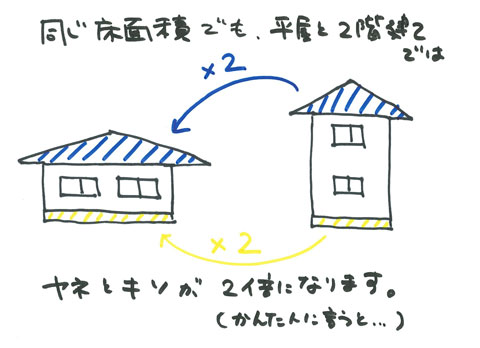 同じ床面積でも、平屋と2階建て
では
×2
×2
ヤネとキソが 2倍になります。
(かんたんに言うと...)